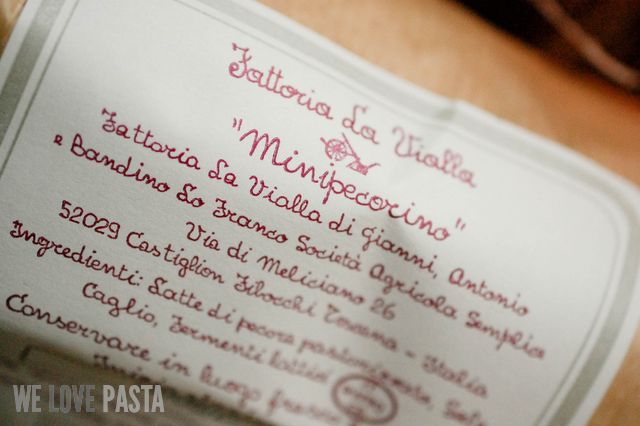 Fattoria La Vialla
"Minipecorino"
Fattoria La Vialla di Gianni, Antonio
e Bandino Lo Franco Società Agricola Semplice
Via di Meliciano 26
52029 Castiglion Fibocchi Toscana - Italia
Ingredienti: Latte di pecora pastorizzato, Sale,
Caglio, Fermenti lattici
Conservare in luogo fresco
WE LOVE PASTA